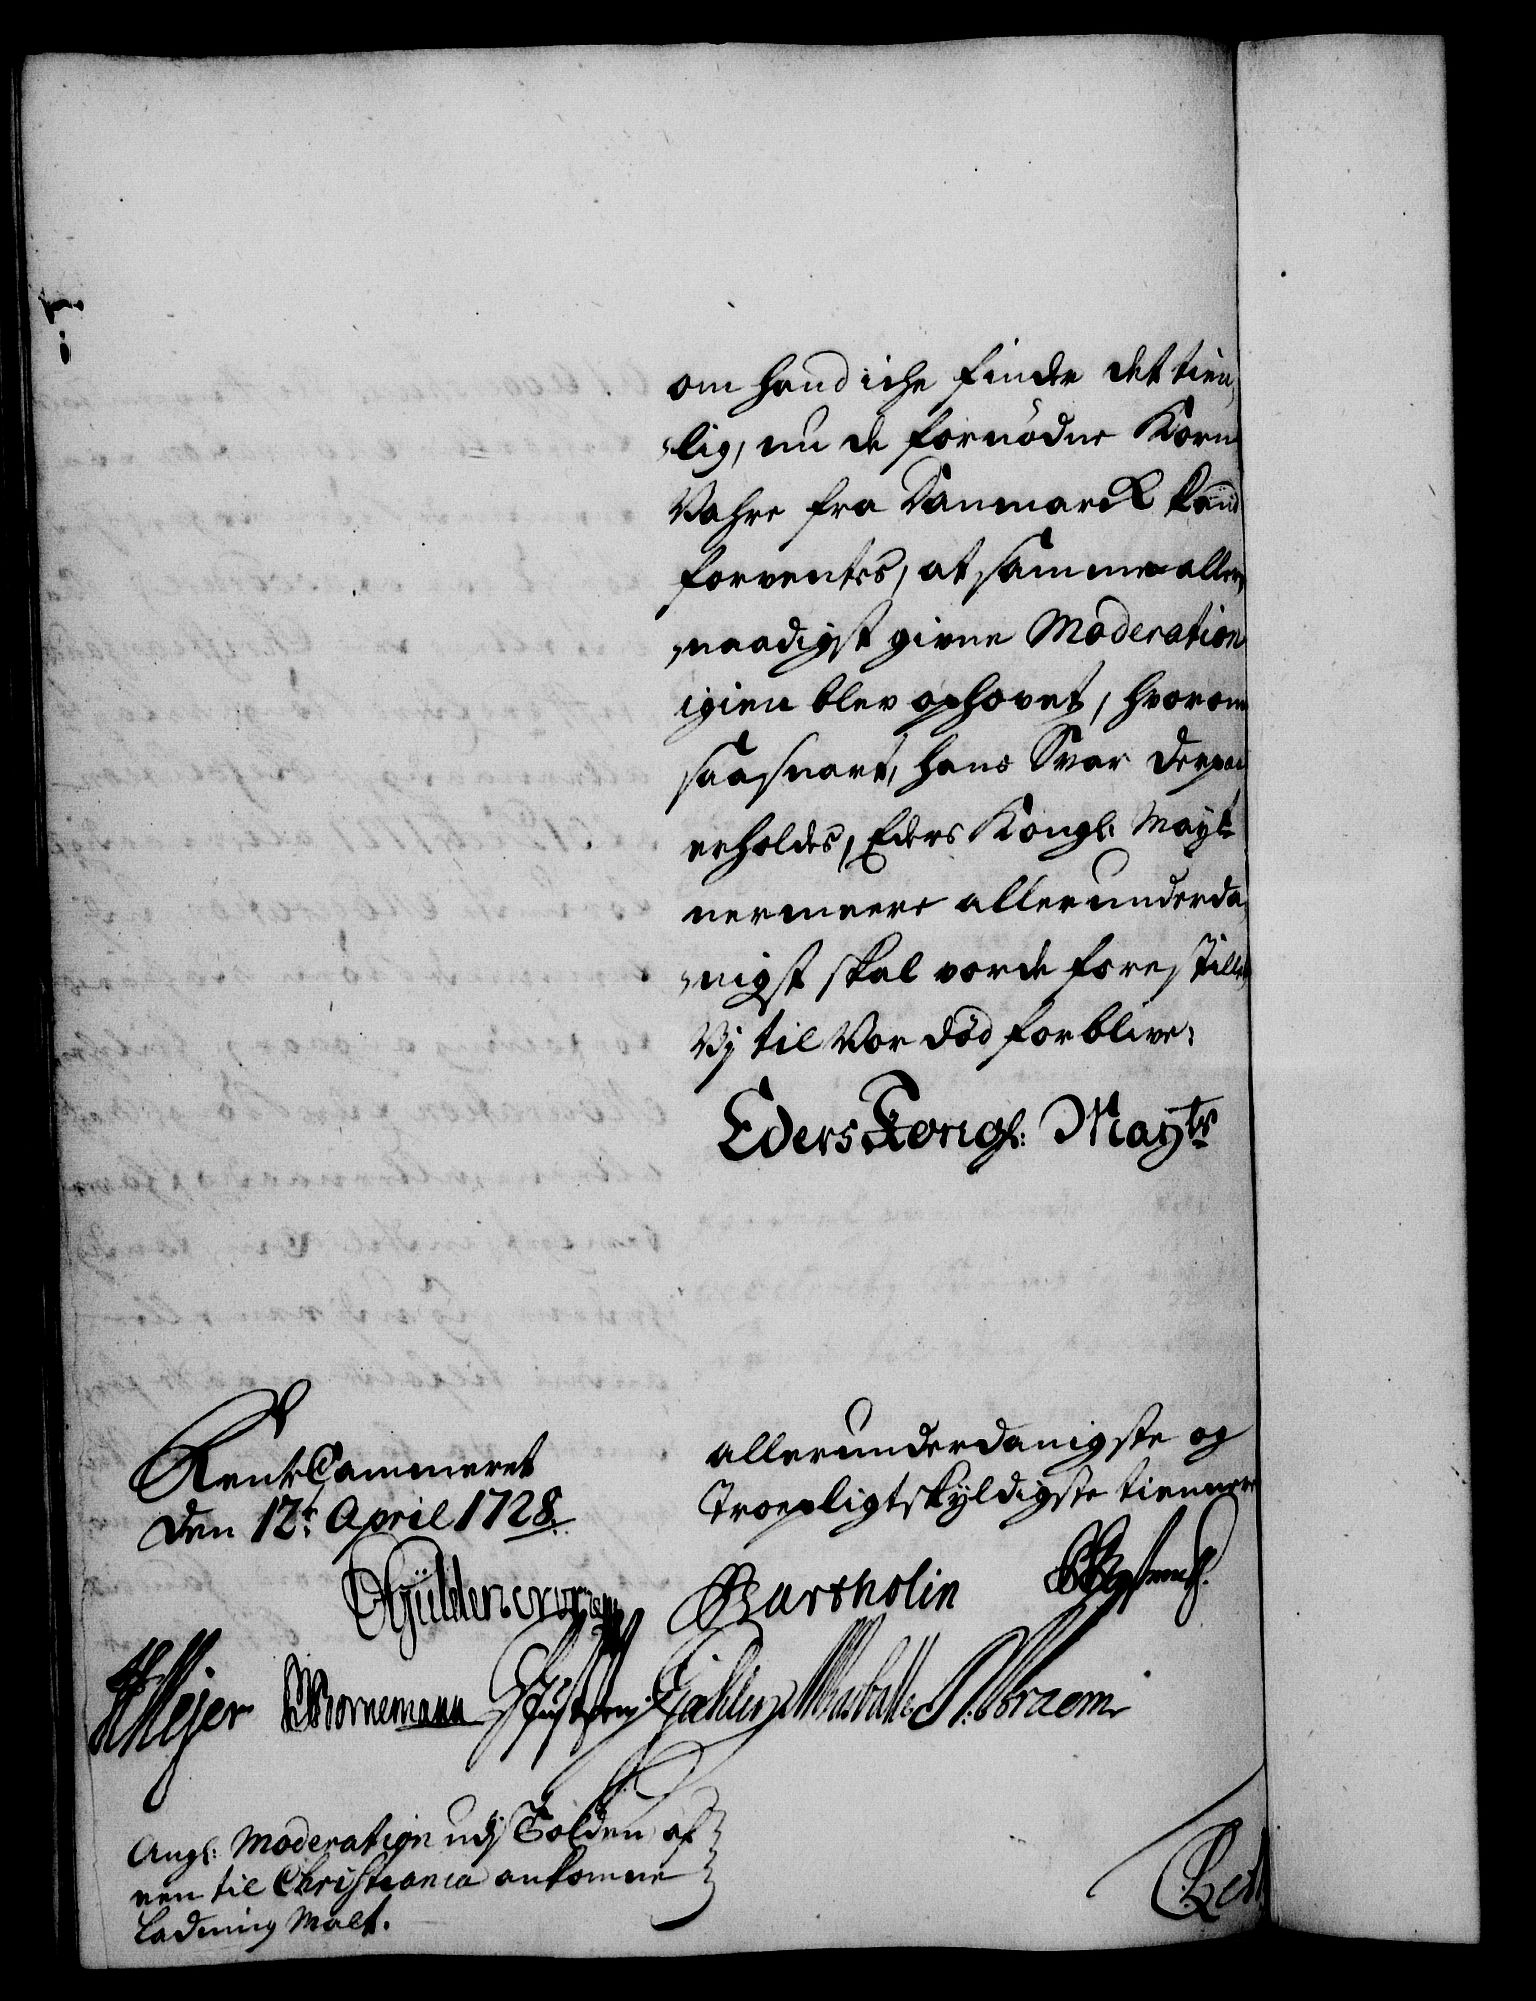 om hand iche finder det tien,
,lig, nu de fornødne Korn
Vahre fra Danmarck kand
forventes, at samme aller,
,naadigst givne Moderation
igien blev ophævet, hvorom
saasnart, hans Svar derpaa
erholdes, Eders Kongl: Mayt
nermeere allerunderda,
,nigst skal vorde forestillet,
Vj til Vor död forblive:
Eders Kongl: Mayts
RenteCammeret
den 12t April 1728.
allerunderdanigste og
Troepligtskyldigste tiennere
Güldencrone
Bartholin
Meyer Bornemann
Angl: Moderation udj Tolden af
een til Christiania ankomne
Ladning Malt.